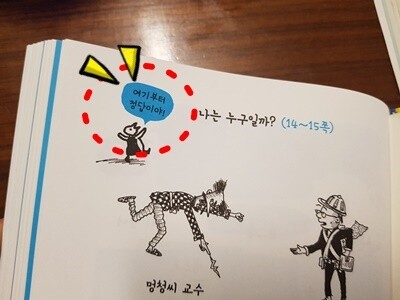 여기부터
정답이야!
나는 누구일까? (14~15쪽)
멍청씨 교수